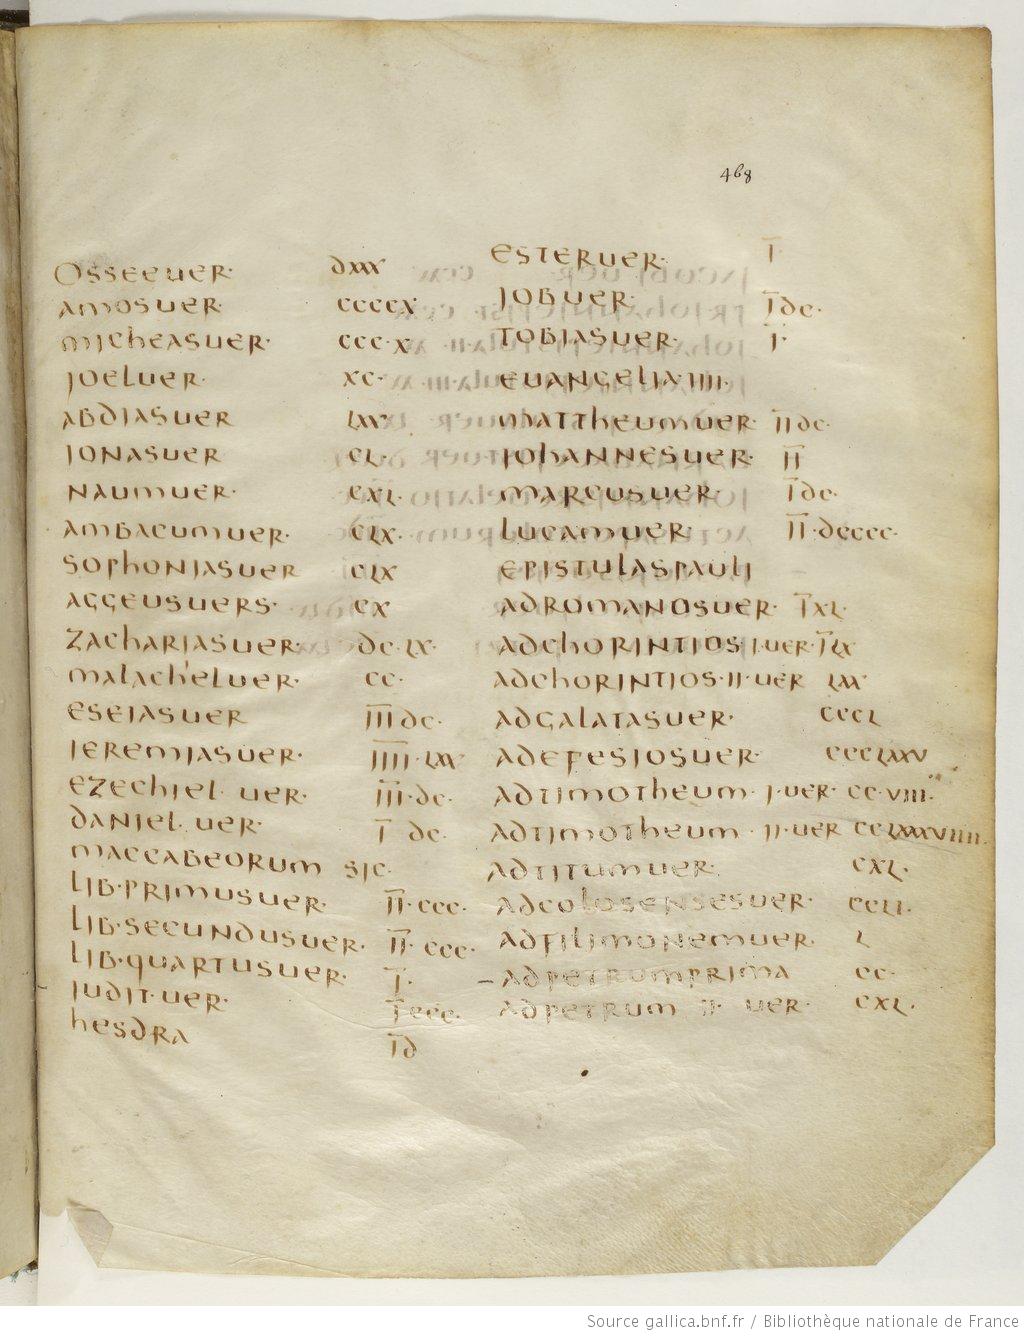 468
Osseeuer· dxxx
amosuer ccccx
micheasuer· ccc·x
joeluer· xc·
abdiasuer lxx
jonasuer cl·
naumuer· cxl·
ambacumuer· clx·
sophoniasuer clx
aggeusuers· cx
zachariasuer· dc·lx·
malacheluer· cc·
eseiasuer III̅ dc·
ieremiasuer· IIII̅·lxx
ezechiel· uer· III̅·dc·
daniel·uer· I̅ dc·
maccabeorum sic·
lib·primusuer· II̅·ccc·
lib·secundusuer· II̅·ccc·
lib·quartusuer· I̅·
iudit·uer· I̅ccc·
hesdra I̅d
esteruer· I̅·
jobuer· I̅dc·
tobiasuer· I̅·
euangelia·IIII·
mattheumuer· II̅dc·
johannesuer· II̅
marcusuer· I̅dc·
lucamuer· II̅·dcccc·
epistulaspauli
adromanosuer· I̅xl·
adchorintios·I·uer·I̅lx
adchorintios·II·uer lxx·
adgalatasuer· cccl
adefesiosuer· ccclxxv
adtimotheum·I·uer·cc·viii·
adtimotheum·II·uer cclxxxviiii·
adtitumuer· cxl·
adcolosensesuer· ccli·
adfilimonemuer· l
–adpetrumprima cc·
adpetrum II· uer· cxl·
Source gallica.bnf.fr / Bibliothèque nationale de France